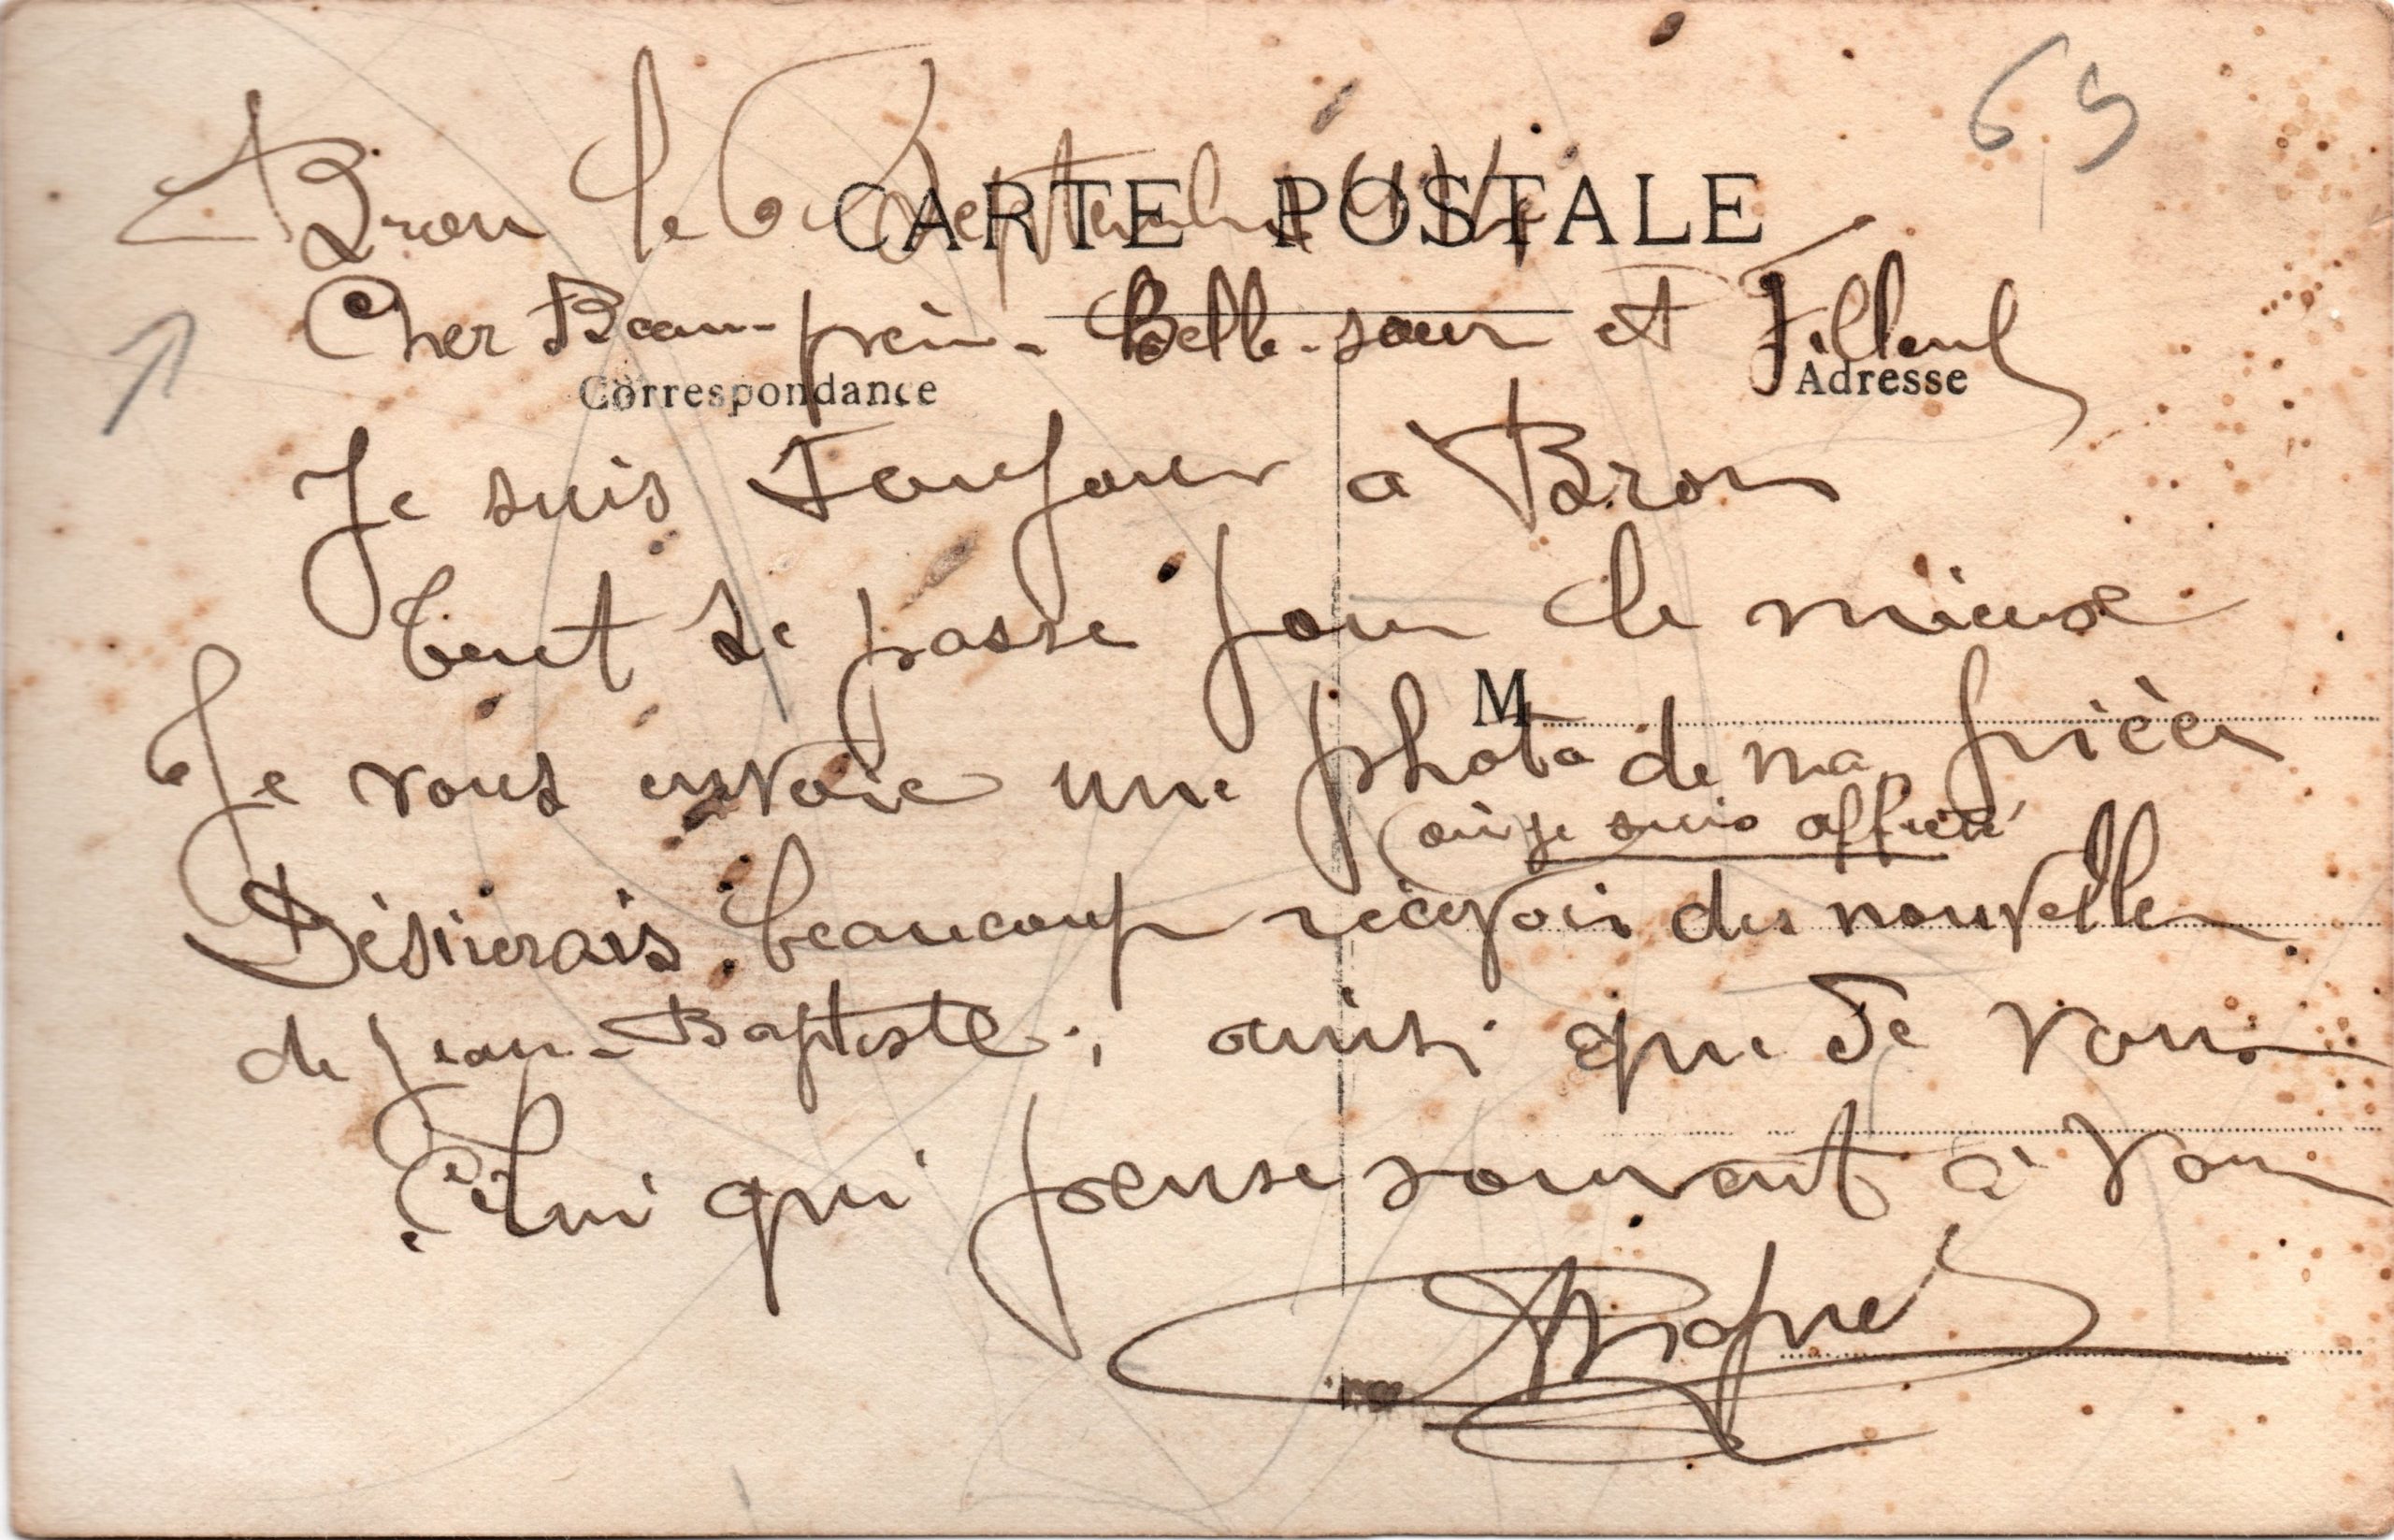 65
Bron le 6 Septembre
CARTE POSTALE
Cher Beau-frère - Belle-sœur et Filleul
Correspondance
Adresse
Je suis Toujours a Bron
tout se passe pour le mieux
M
Je vous envoie une photo de ma pièce
(où je suis affecté
Désirerais beaucoup recevoir des nouvelles
de Jean-Baptiste, ainsi que De vous
Celui qui pense souvent à vous